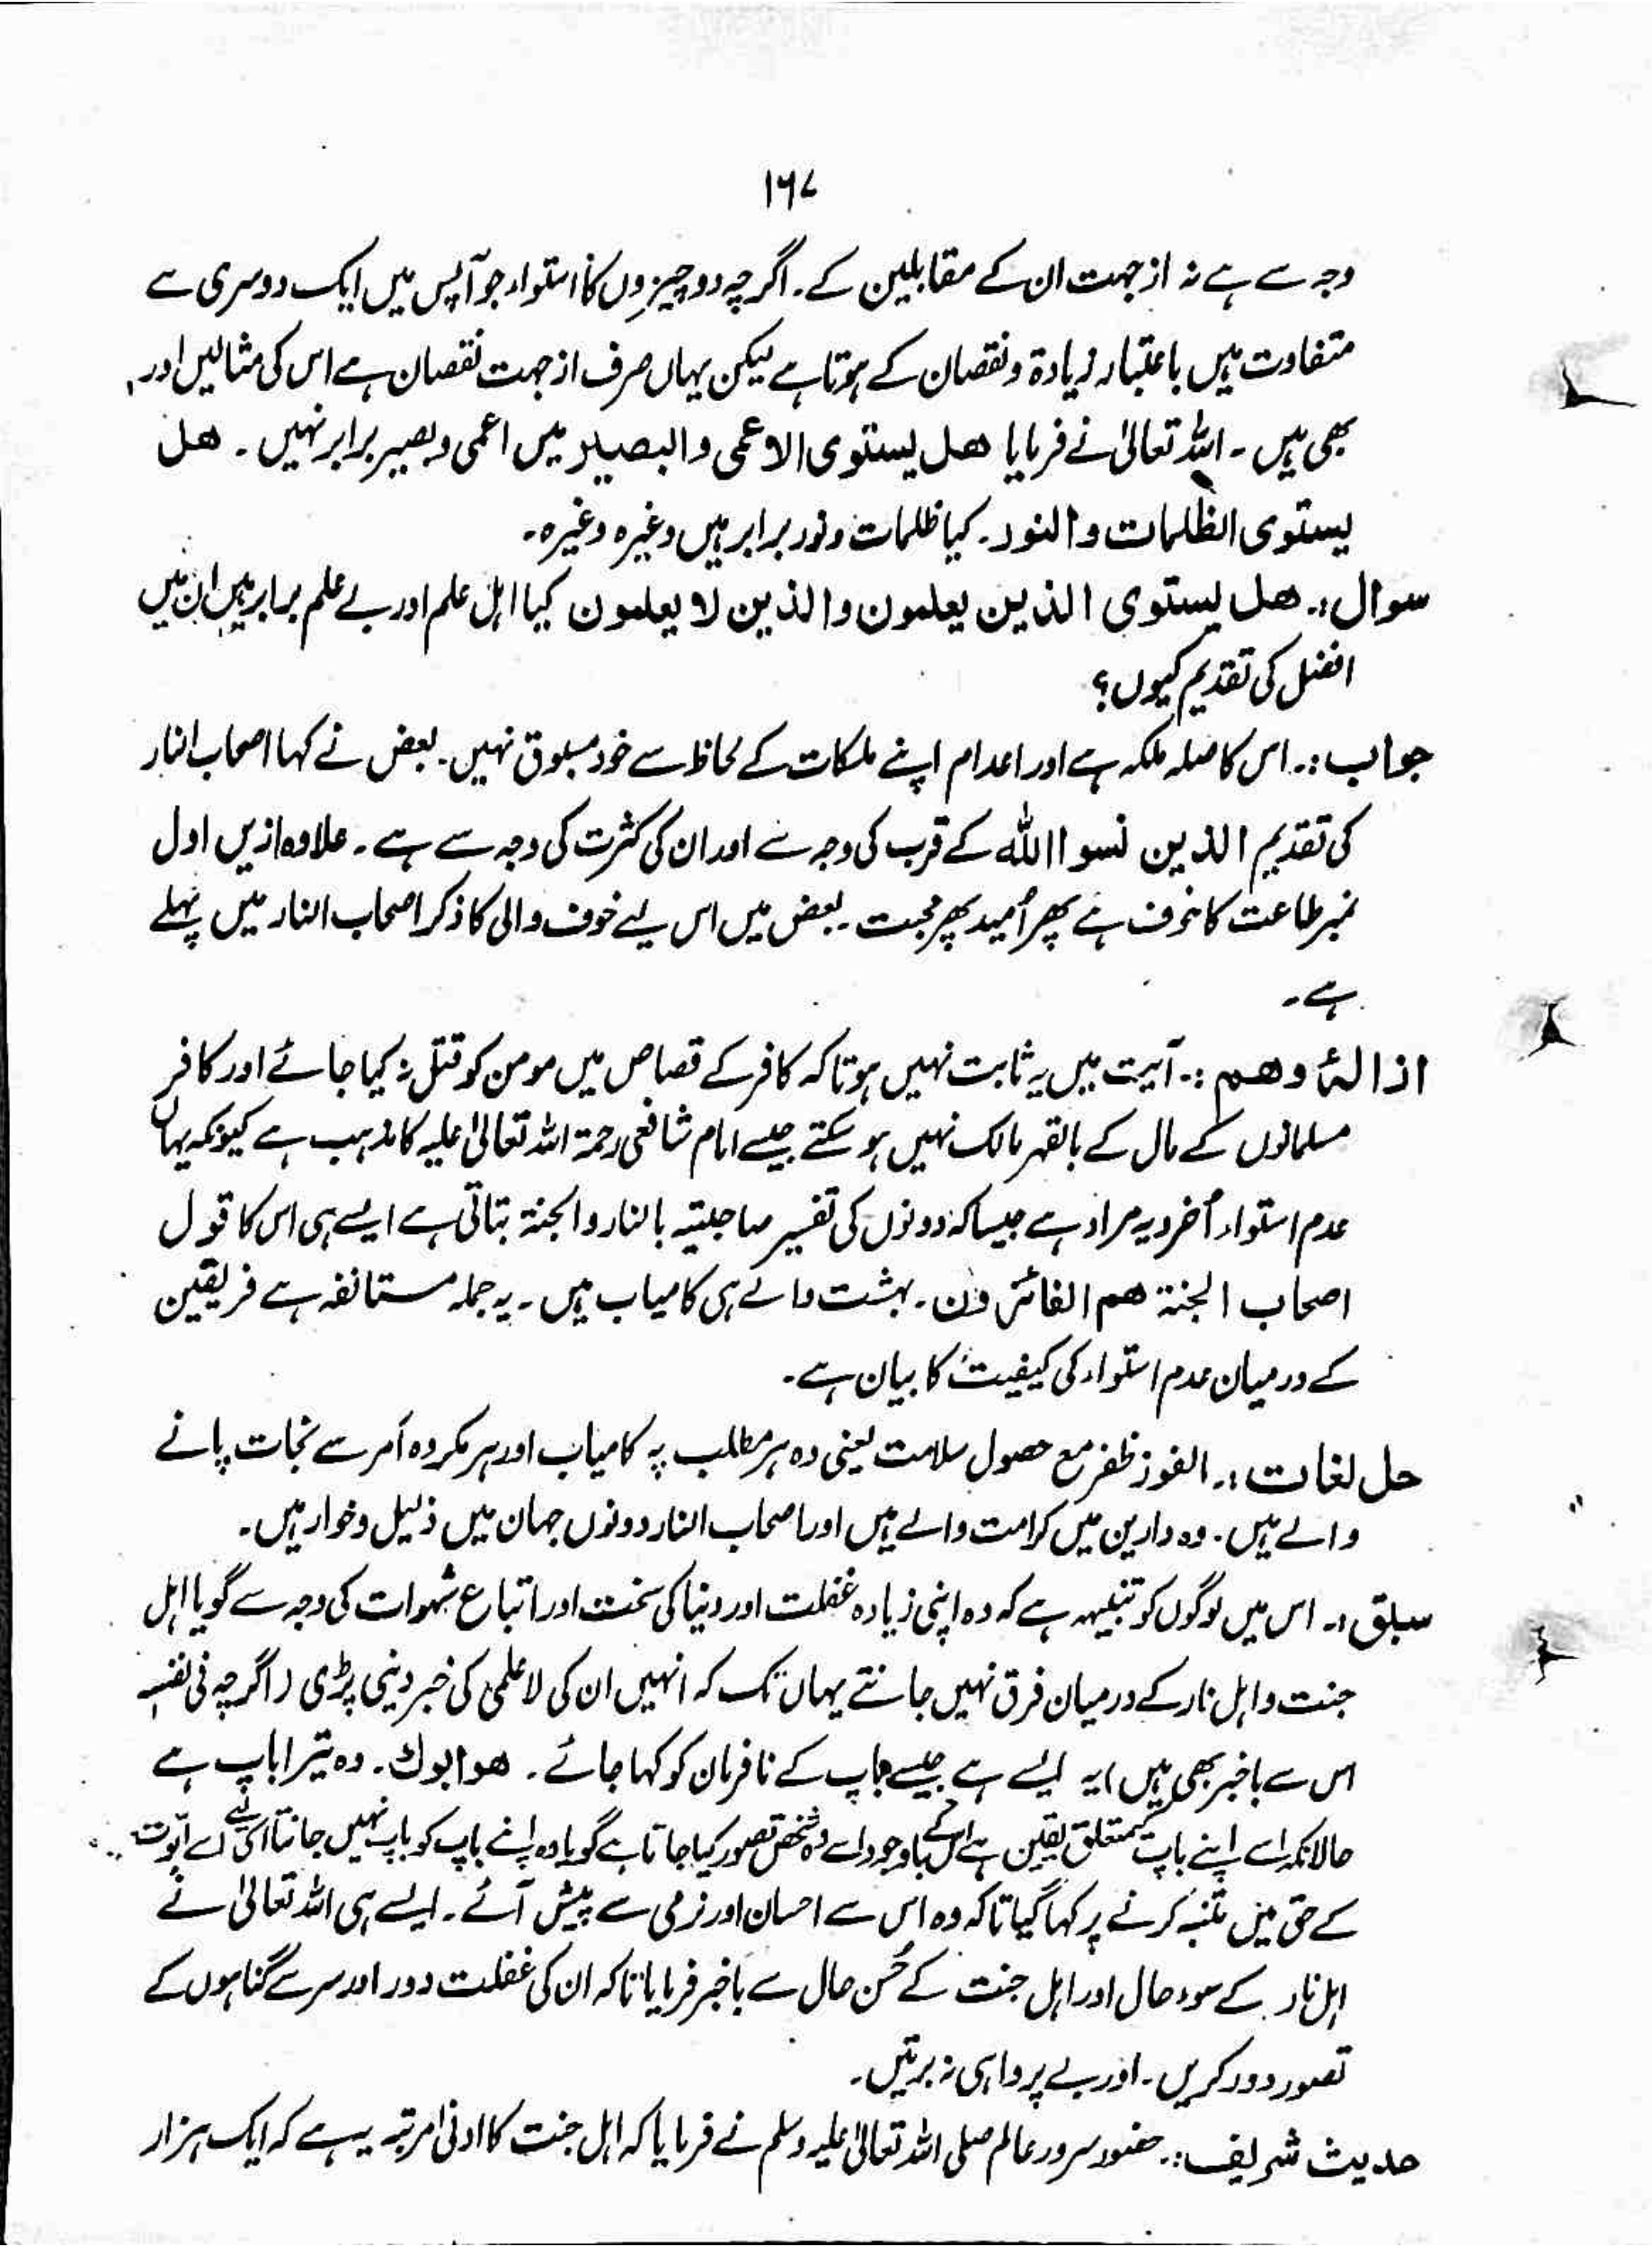 ۱۶۷
وجہ سے ہے نہ از جہت ان کے مقابلین کے۔ اگرچہ دو چیزوں کا استواء جو آپس میں ایک دوسری سے
متفاوت ہیں باعتبار زیادۃ و نقصان کے ہوتا ہے لیکن یہاں صرف از جہت نقصان ہے اس کی مثالیں اور
بھی ہیں۔ اللہ تعالیٰ نے فرمایا ھل یستوی الاعمی والبصیر میں اعمی و بصیر برابر نہیں۔ ھل
یستوی الظلمات والنور۔ کیا ظلمات و نور برابر ہیں وغیرہ وغیرہ۔
سوال :۔ ھل یستوی الذین یعلمون والذین لا یعلمون کیا اہل علم اور بے علم برابر ہیں ان میں
افضل کی تقدیم کیوں؟
جواب :۔ اس کا صلہ ملکہ ہے اور اعدام اپنے ملکات کے لحاظ سے خود مسبوق نہیں۔ بعض نے کہا اصحاب النار
کی تقدیم الذین نسوا اللہ کے قرب کی وجہ سے اور ان کی کثرت کی وجہ سے ہے۔ علاوہ ازیں اول
نمبر طاعت کا خوف ہے پھر اُمید پھر محبت۔ بعض میں اس لیے خوف والی کا ذکر اصحاب النار میں پہلے
ہے۔
ازالۂ وھم :۔ آیت میں یہ ثابت نہیں ہوتا کہ کافر کے قصاص میں مومن کو قتل نہ کیا جائے اور کافر
مسلمانوں کے مال کے بالقہر مالک نہیں ہو سکتے جیسے امام شافعی رحمۃ اللہ تعالیٰ علیہ کا مذہب ہے کیونکہ یہاں
عدم استواء اُخرویہ مراد ہے جیسا کہ دونوں کی تفسیر صاحبیۃ بالنار والجنۃ بتاتی ہے ایسے ہی اس کا قول
اصحاب الجنۃ ھم الفائزون۔ بہشت والے ہی کامیاب ہیں۔ یہ جملہ مستانفہ ہے فریقین
کے درمیان عدم استواء کی کیفیت کا بیان ہے۔
حل لغات :۔ الفوز ظفر مع حصول سلامت یعنی وہ ہر مطلب پہ کامیاب اور ہر مکروہ اَمر سے نجات پانے
والے ہیں۔ وہ دارین میں کرامت والے ہیں اور اصحاب النار دونوں جہان میں ذلیل و خوار ہیں۔
سبق :۔ اس میں لوگوں کو تنبیہہ ہے کہ وہ اپنی زیادہ غفلت اور دنیا کی سخت اور اتباع شہوات کی وجہ سے گویا اہل
جنت و اہل نار کے درمیان فرق نہیں جانتے یہاں تک کہ انہیں ان کی لاعلمی کی خبر دینی پڑی (اگرچہ فی نفسہ
اس سے باخبر بھی ہیں) یہ ایسے ہے جیسے باپ کے نافرمان کو کہا جائے۔ ھو ابوك۔ وہ تیرا باپ ہے
حالانکہ اسے اپنے باپ کے متعلق یقین ہے اس کے باوجود اسے وہ شخص تصور کیا جاتا ہے گویا وہ اپنے باپ کو باپ نہیں جانتا اسی لیے اسے ابوّت
کے حق میں متنبہ کرنے پر کہا گیا تاکہ وہ اس سے احسان اور نرمی سے پیش آئے۔ ایسے ہی اللہ تعالیٰ نے
اہل نار کے سوء حال اور اہل جنت کے حُسن حال سے باخبر فرمایا تاکہ ان کی غفلت دور اور سر سے گناہوں کے
تصور دور کریں۔ اور بے پرواہی نہ برتیں۔
حدیث شریف :۔ حضور سرور عالم صلی اللہ تعالیٰ علیہ وسلم نے فرمایا کہ اہل جنت کا ادنیٰ مرتبہ یہ ہے کہ ایک ہزار